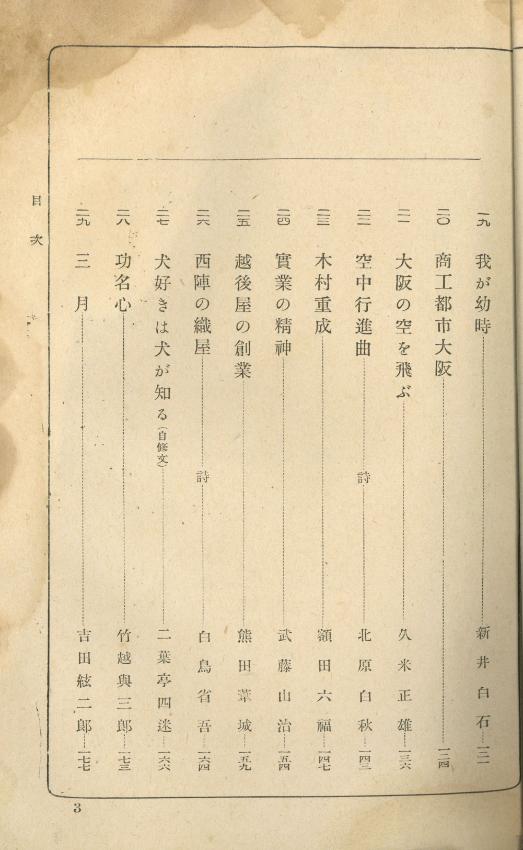 一九 我が幼時 新井白石 一三一
二〇 商工都市大阪 一三四
二一 大阪の空を飛ぶ 久米正雄 一三六
二二 空中行進曲 詩 北原白秋 一四三
二三 木村重成 額田六福 一四七
二四 實業の精神 武藤山治 一五四
二五 越後屋の創業 熊田葦城 一五九
二六 西陣の織屋 詩 白鳥省吾 一六四
二七 犬好きは犬が知る(自修文) 二葉亭四迷 一六六
二八 功名心 竹越與三郎 一七三
二九 三月 吉田絃二郎 一七七
目次
3